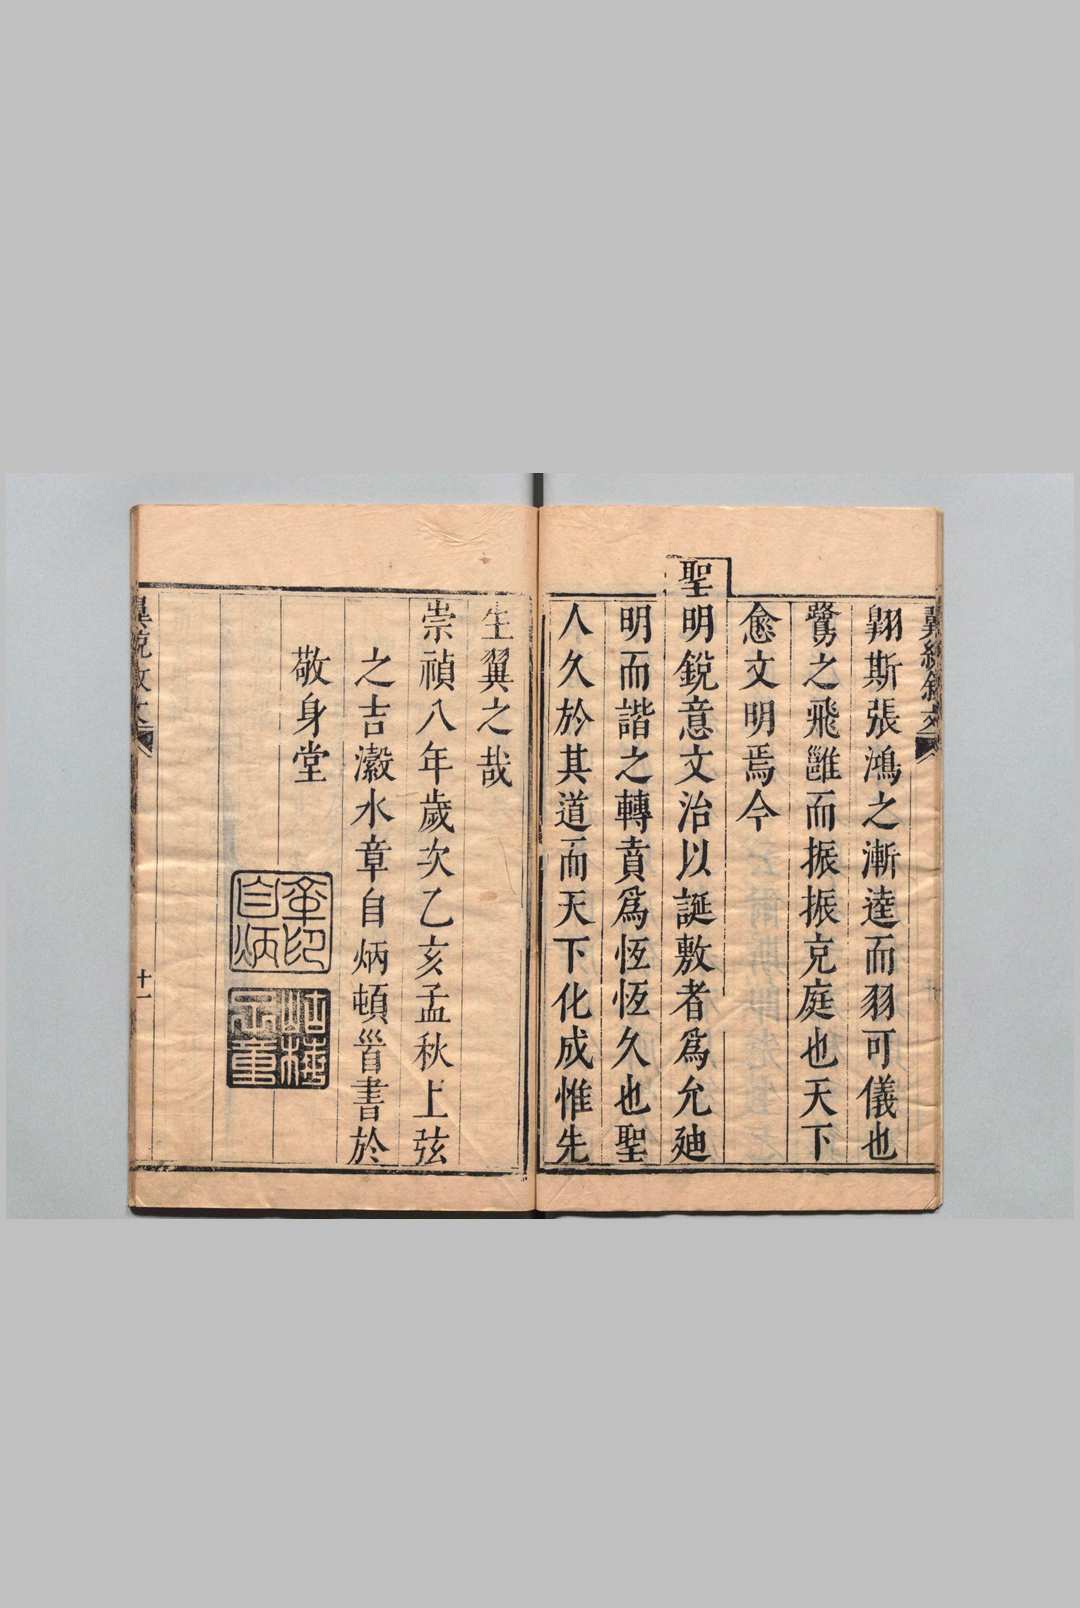 翺斯張鴻之漸逵而羽可儀也
鷺之飛雝而振振克庭也天下
愈文明焉今
聖明銳意文治以誕敷者為允廸
明而諧之轉賁為恆恆久也聖
人久於其道而天下化成惟先
生翼之哉
崇禎八年歲次乙亥孟秋上弦
之吉瀫水章自炳頓首書於
敬身堂
章自炳印
十一